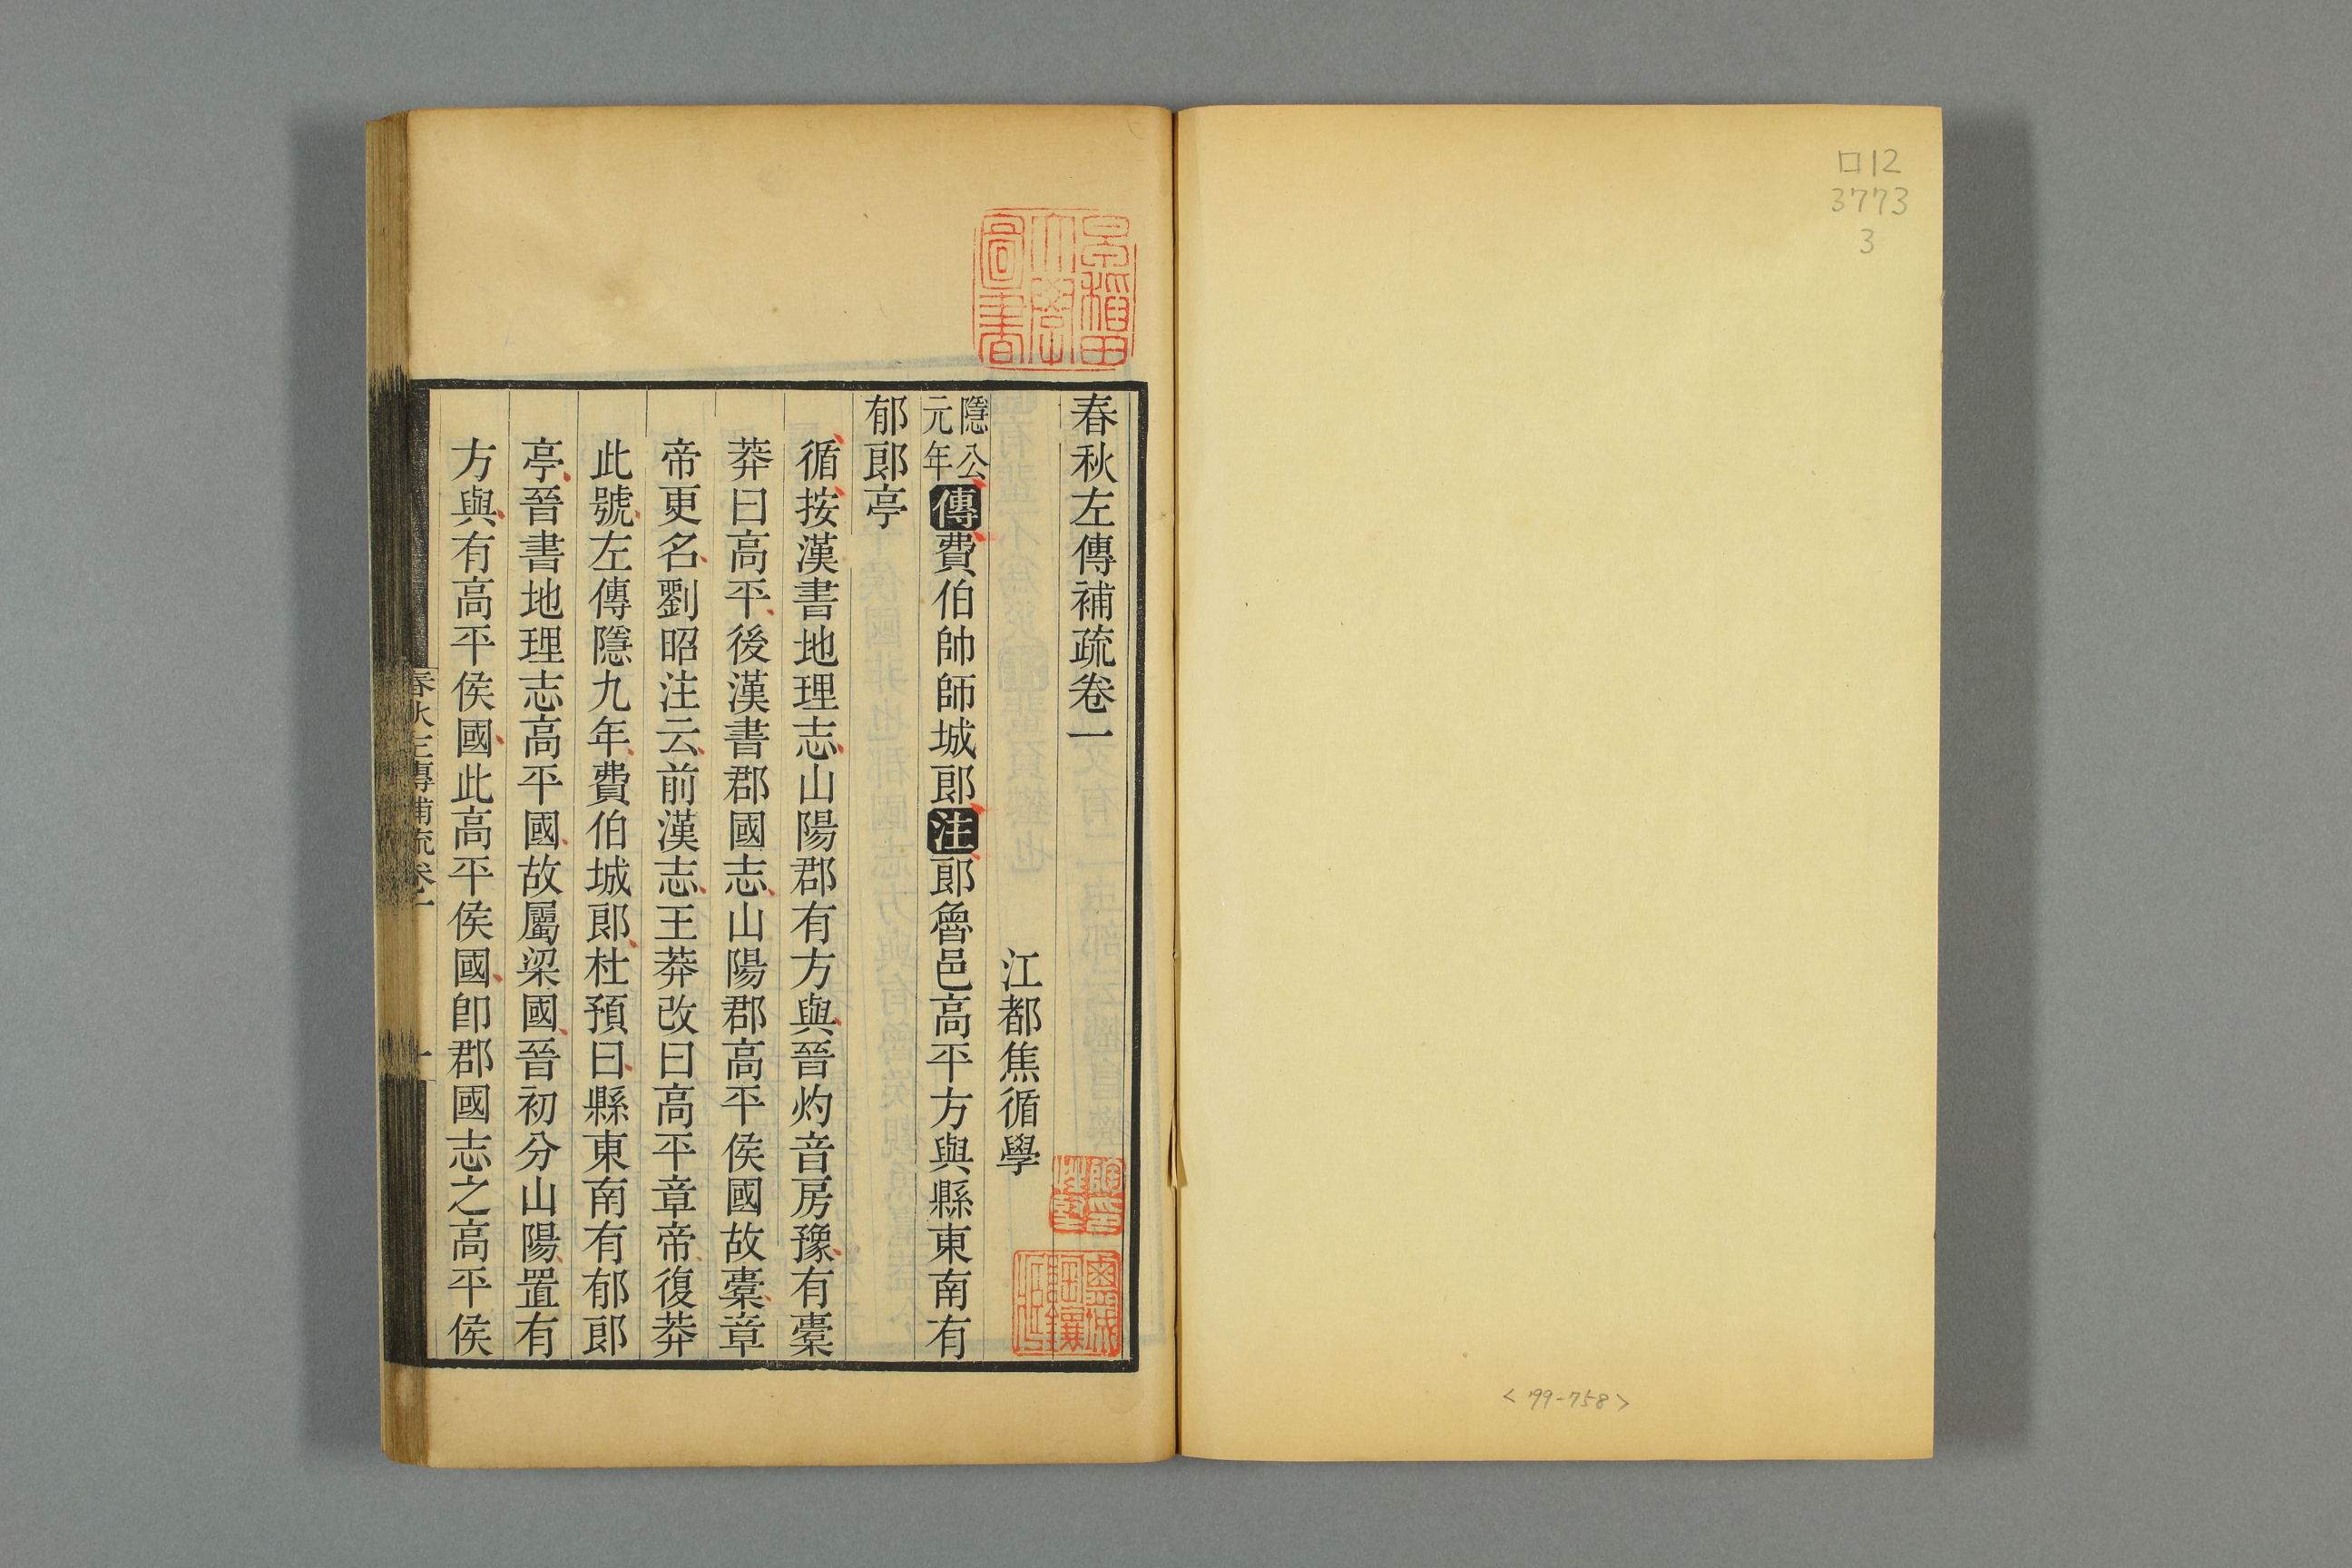 口12
3773
3
<199-758>
早稲田大學圖書
春秋左傳補疏卷一
江都焦循學
隱公元年傳費伯帥師城郎注郎魯邑高平方與縣東南有
郁郎亭
循按漢書地理志山陽郡有方與晉灼音房豫有橐
莽曰高平後漢書郡國志山陽郡高平侯國故橐章
帝更名劉昭注云前漢志王莽改曰高平章帝復莽
此號左傳隱九年費伯城郎杜預曰縣東南有郁郎
亭晉書地理志高平國故屬梁國晉初分山陽置有
方與有高平侯國此高平侯國卽郡國志之高平侯
春秋左傳補疏卷一
一